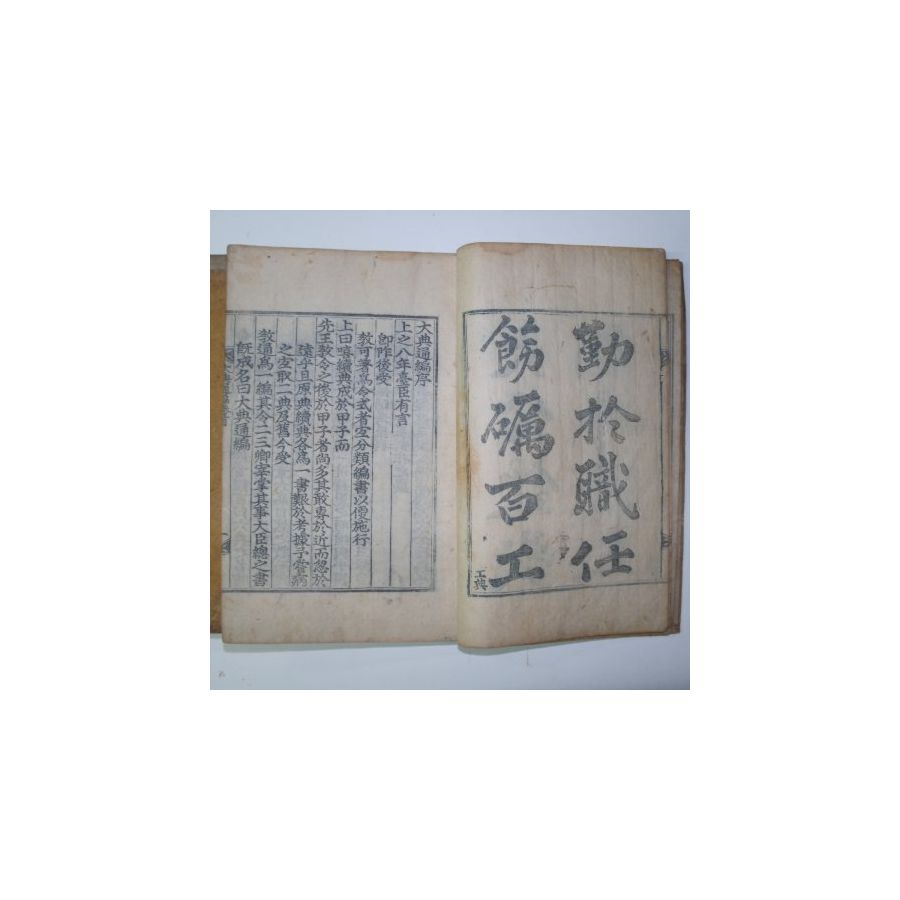 勤於職任
飭礪百工
工典
大典通編序
上之八年臺臣有言
卽阼後受
敎可著爲令式者宜分類編書以便施行
上曰嘻續典成於甲子而
先王敎令之後於甲子者尙多其敢專於近而忽於
遠乎且原典續典各爲一書艱於考據予嘗病
之宜取二典及舊今受
敎通爲一編其令二三卿宰掌其事大臣總之書
旣成名曰大典通編